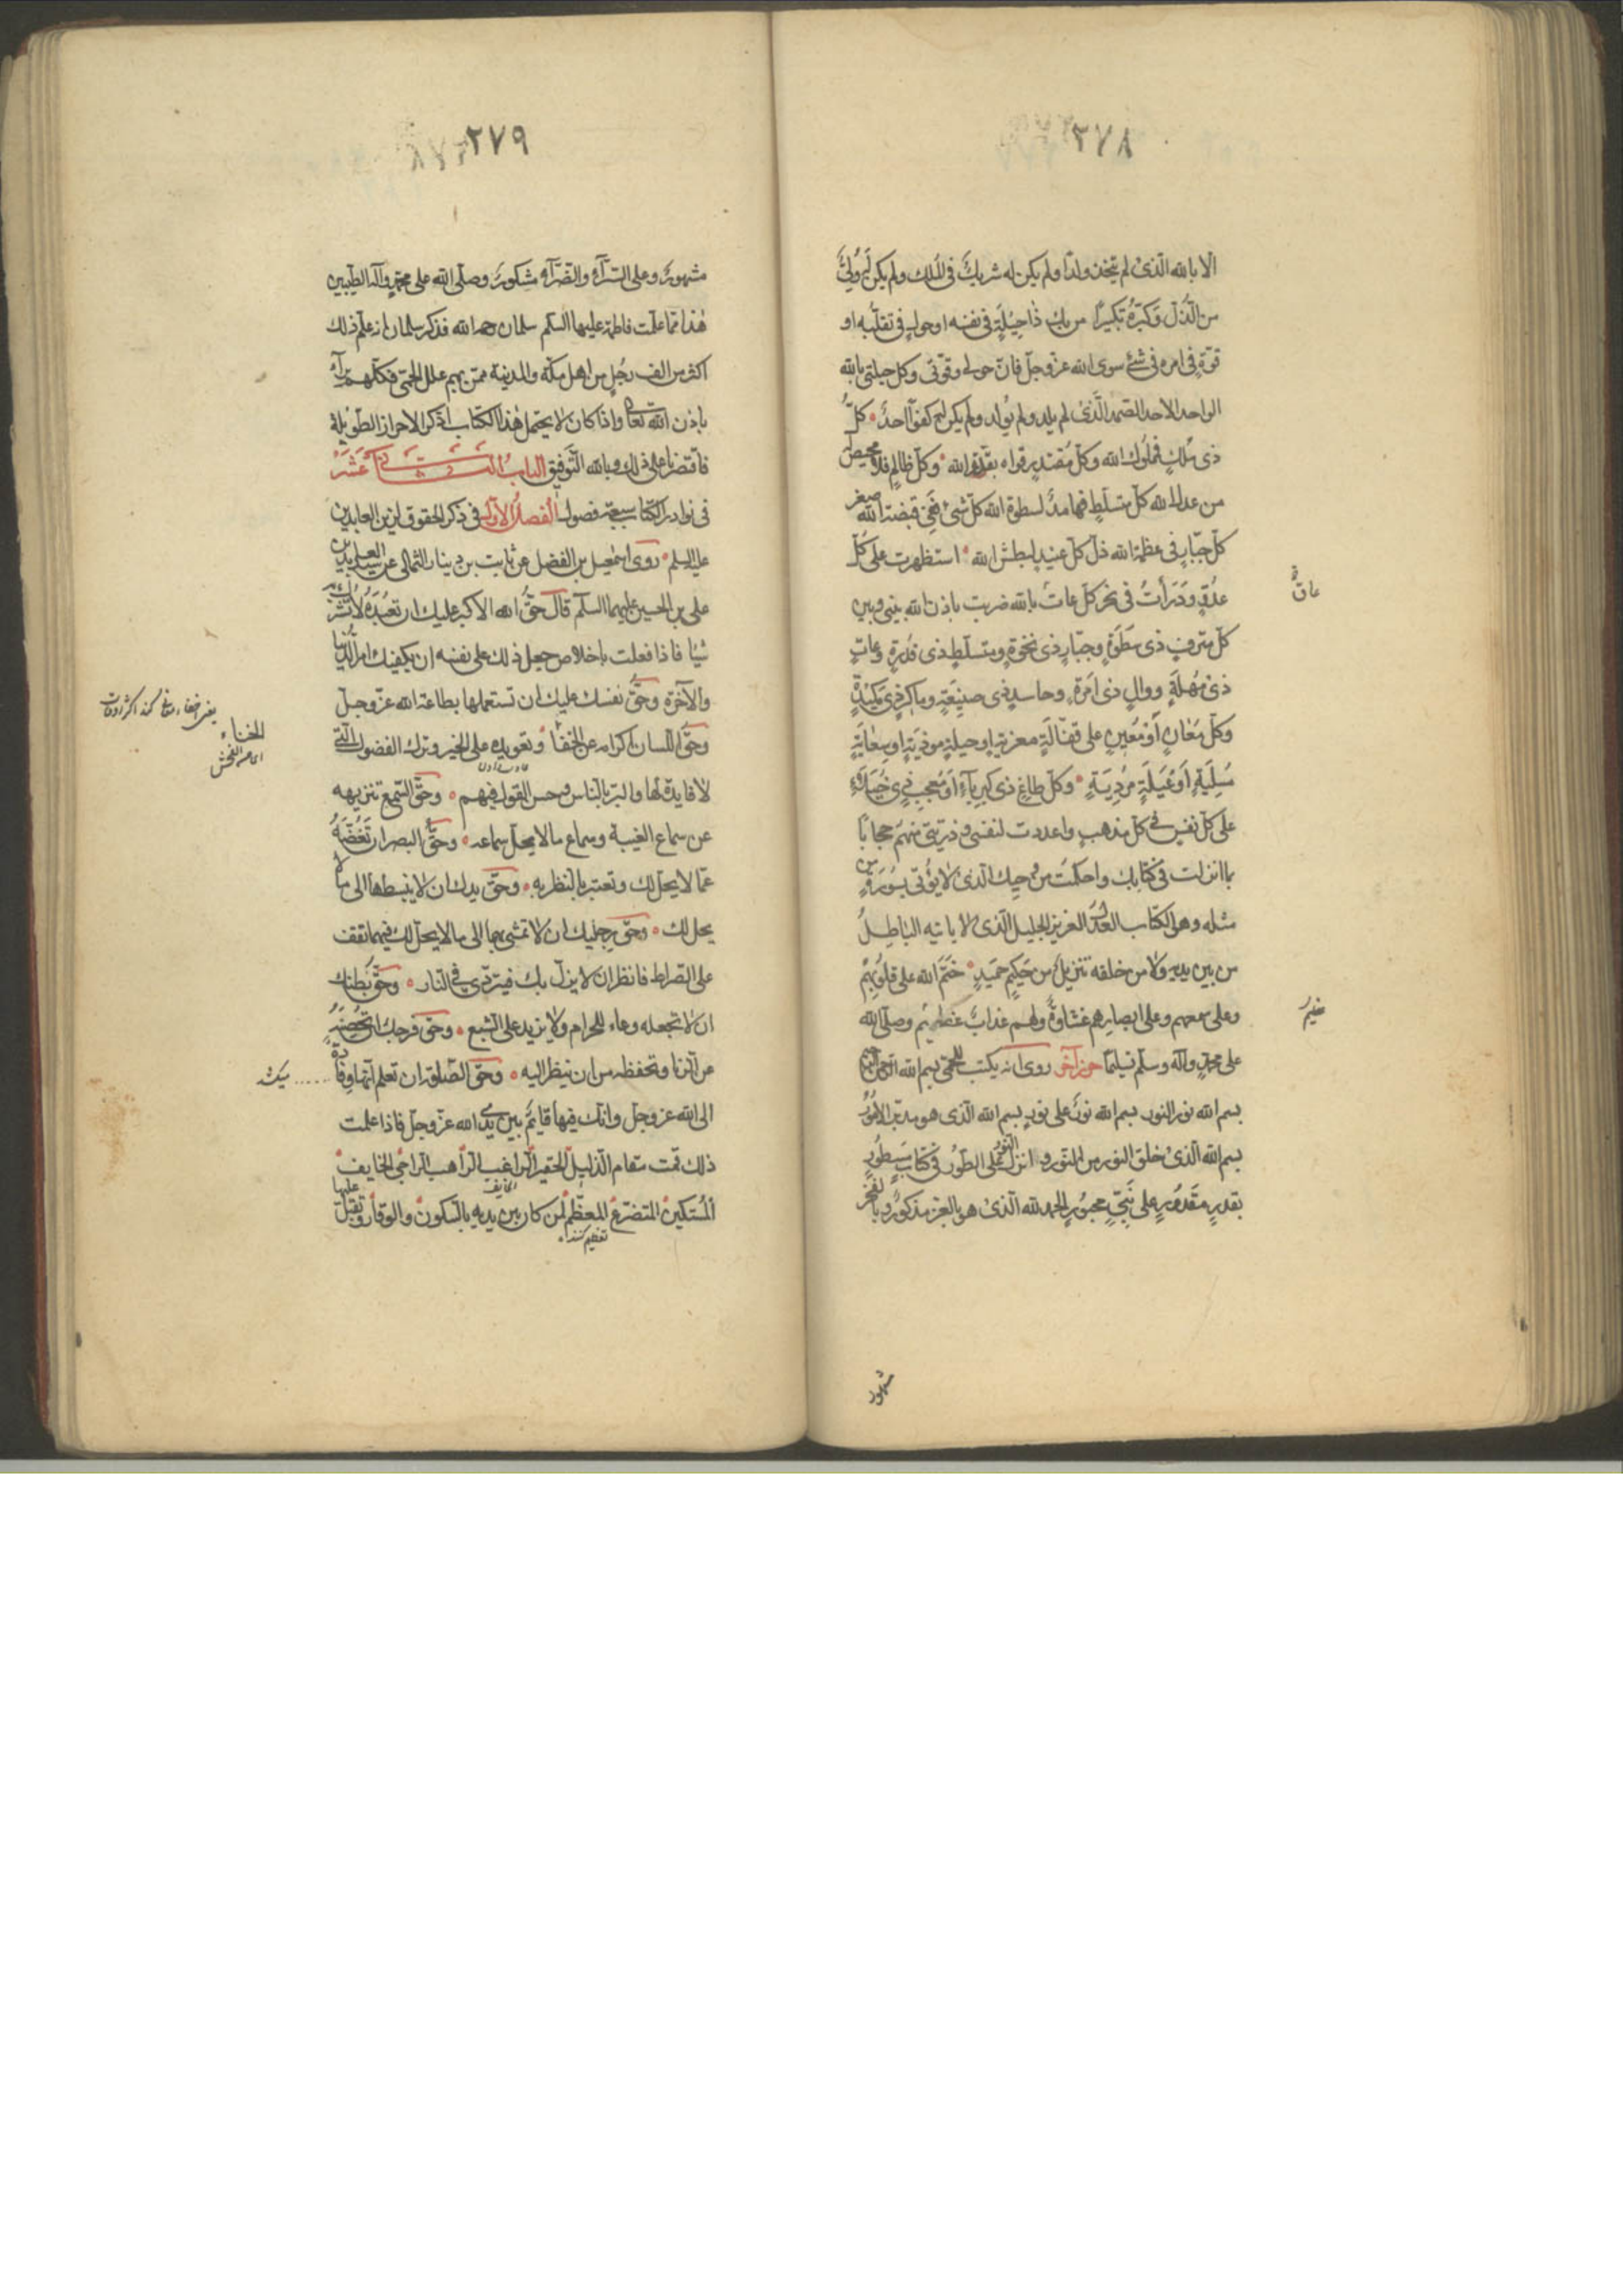 ٢٧٨
الا بالله الّذی لم یتّخذ ولدًا ولم یکن له شریکٌ فی الملک ولم یکن له ولیٌّ
من الذّل وکبّره تکبیرًا من یک ذا حیلة فی نفسه او حول فی تقلّبه او
قوّة فی امره فی شئ سوی الله عزّ وجلّ فانّ حولی وقوّتی وکل حیلتی بالله
الواحد الاحد الصّمد الّذی لم یلد ولم یولد ولم یکن له کفوًا احد کلّ
ذی ملک فمملوک الله وکلّ مقتدر قواه بقدرة الله وکلّ ظالم فلا محیص
من عدل الله کلّ متسلّط فهامد لسطوة الله کلّ شئ ففی قبضة الله صغر
کلّ جبّار فی عظمة الله ذلّ کلّ عنید لبطش الله استظهرت علی کلّ
عدوّ ودرأت فی نحر کلّ عات بالله ضربت باذن الله بینی وبین
کلّ مترف ذی سطوة وجبّار ذی نخوة ومتسلّط ذی قدرة وعات
ذی مهلة ووال ذی امرة وحاسد ذی صنیعة وماکر ذی مکیدة
وکلّ معان او معین علی قتّالة مغریة او حیلة موذیة او سعایة
مسلیة او غیلة مردیة وکلّ طاغ ذی کبریاء او معجب ذی خیلاء
علی کلّ نفس فی کلّ مذهب واعددت لنفسی وذریتی منهم حجابًا
بما انزلت فی کتابک واحکمت من وحیک الّذی لا یؤتی بسورة من
مثله وهو الکتاب العدل العزیز الجلیل الّذی لا یاتیه الباطل
من بین یدیه ولا من خلفه تنزیل من حکیم حمید ختم الله علی قلوبهم
وعلی سمعهم وعلی ابصارهم غشاوة ولهم عذاب عظیم وصلّی الله
علی محمّد وآله وسلّم تسلیمًا حرز آخر روی انه یکتب للحمّی بسم الله الرحمن الرحیم
بسم الله نور النور بسم الله نور علی نور بسم الله الّذی هو مدبّر الامور
بسم الله الّذی خلق النور من النّور وانزل النّور علی الطّور فی کتاب مسطور
بقدر مقدور علی نبیّ محبور الحمد لله الّذی هو بالعزّ مذکور وبالفخر
مشهور
٢٧٩
مشهور وعلی السّرّاء والضّرّاء مشکور وصلّی الله علی محمّد وآله الطیّبین
هذا ممّا علّمت فاطمة علیها السّلم سلمان رحمه الله فذکر سلمان انه علّم ذلک
اکثر من الف رجل من اهل مکّة والمدینة ممّن بهم علل الحمّی فکلّهم برأ
باذن الله تعالی واذا کان لا یحتمل هذا الکتاب ذکر الاحراز الطّویلة
فاقتصرنا علی ذلک وبالله التّوفیق الباب الثّانی عشر
فی نوادر الکتاب سبعة فصول الفصل الاوّل فی ذکر الحقوق لزین العابدین
علیه السلم روی اسمعیل بن الفضل عن ثابت بن دینار الثمالی عن سید العابدین
علی بن الحسین علیهما السلم قال حقّ الله الاکبر علیک ان تعبده لا تشرک به
شیئا فاذا فعلت باخلاص جعل ذلک علی نفسه ان یکفیک امر الدّنیا
والآخرة وحقّ نفسک علیک ان تستعملها بطاعة الله عزّ وجلّ
وحقّ اللسان اکرامه عن الخنا وتعویده علی الخیر وترک الفضول الّتی
لا فایدة لها والبرّ بالناس وحسن القول فیهم وحقّ السّمع تنزیهه
عن سماع الغیبة وسماع ما لا یحلّ سماعه وحقّ البصر ان تغضّه
عمّا لا یحلّ لک وتعتبر بالنظر به وحقّ یدک ان لا یبسطها الی ما لا
یحل لک وحقّ رجلیک ان لا تمشی بهما الی ما لا یحلّ لک فبهما تقف
علی الصّراط فانظر ان لا یزلّ بک فیتردّی فی النّار وحقّ بطنک
ان لا تجعله وعاء للحرام ولا یزید علی الشبع وحقّ فرجک ان تحصنه
عن الزنا وتحفظه من ان ینظر الیه وحقّ الصّلوة ان تعلم انّها وفادة
الی الله عزّ وجلّ وانّک فیها قایم بین یدی الله عزّ وجلّ فاذا علمت
ذلک قمت مقام الذّلیل الحقیر الرّاغب الرّاهب الرّاجی الخایف
المستکین المتضرّع المعظّم لمن کان بین یدیه بالسّکون والوقار وتقبل علیها
الخناء